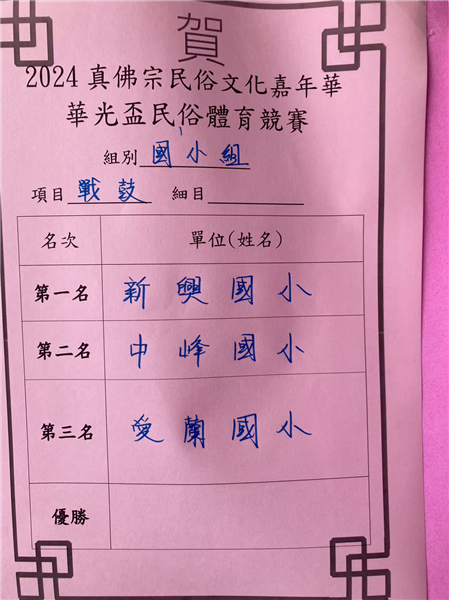 賀
2024真佛宗民俗文化嘉年華
華光盃民俗體育競賽
組別 國小組
項目 戰鼓 細目
名次 單位(姓名)
第一名 新興國小
第二名 中峰國小
第三名 愛蘭國小
優勝